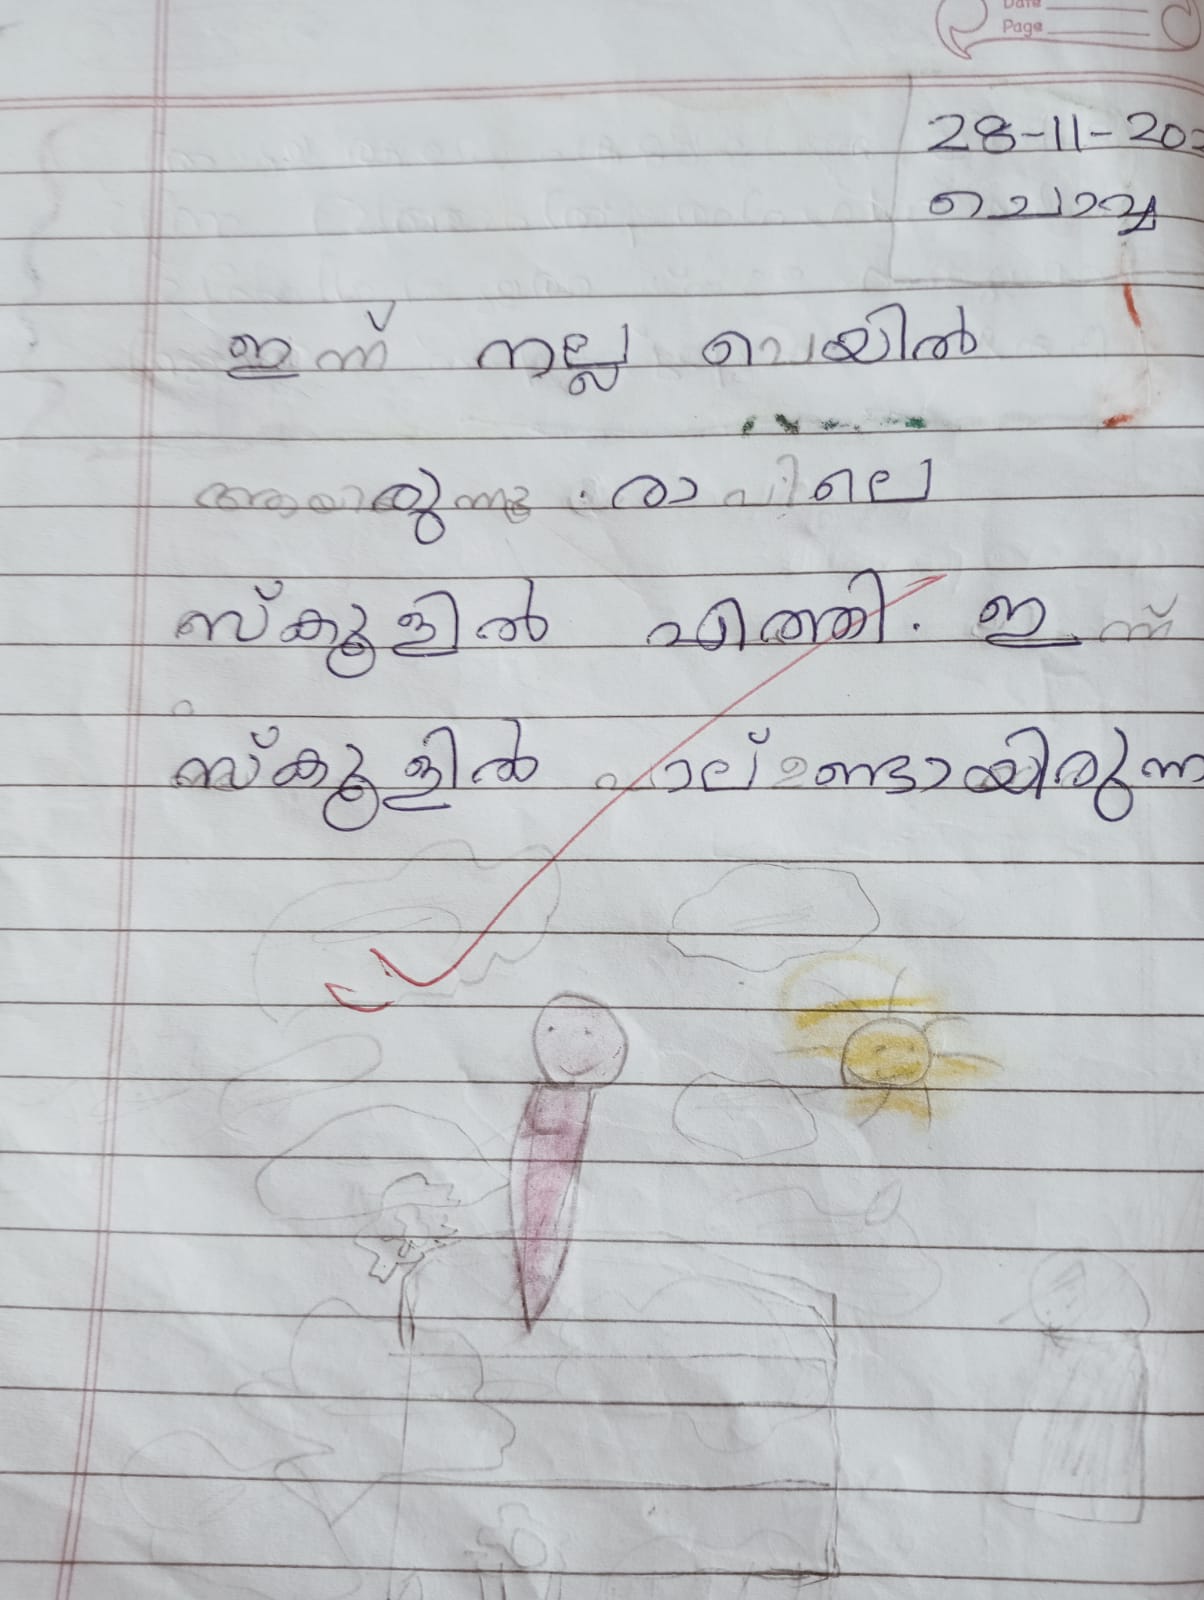 Date
Page
28-11-20
ചൊവ്വ
ഇന്ന് നല്ല വെയിൽ
ആയിരുന്നു . രാവിലെ
സ്കൂളിൽ എത്തി. ഇന്ന്
സ്കൂളിൽ പാല് ഉണ്ടായിരുന്ന